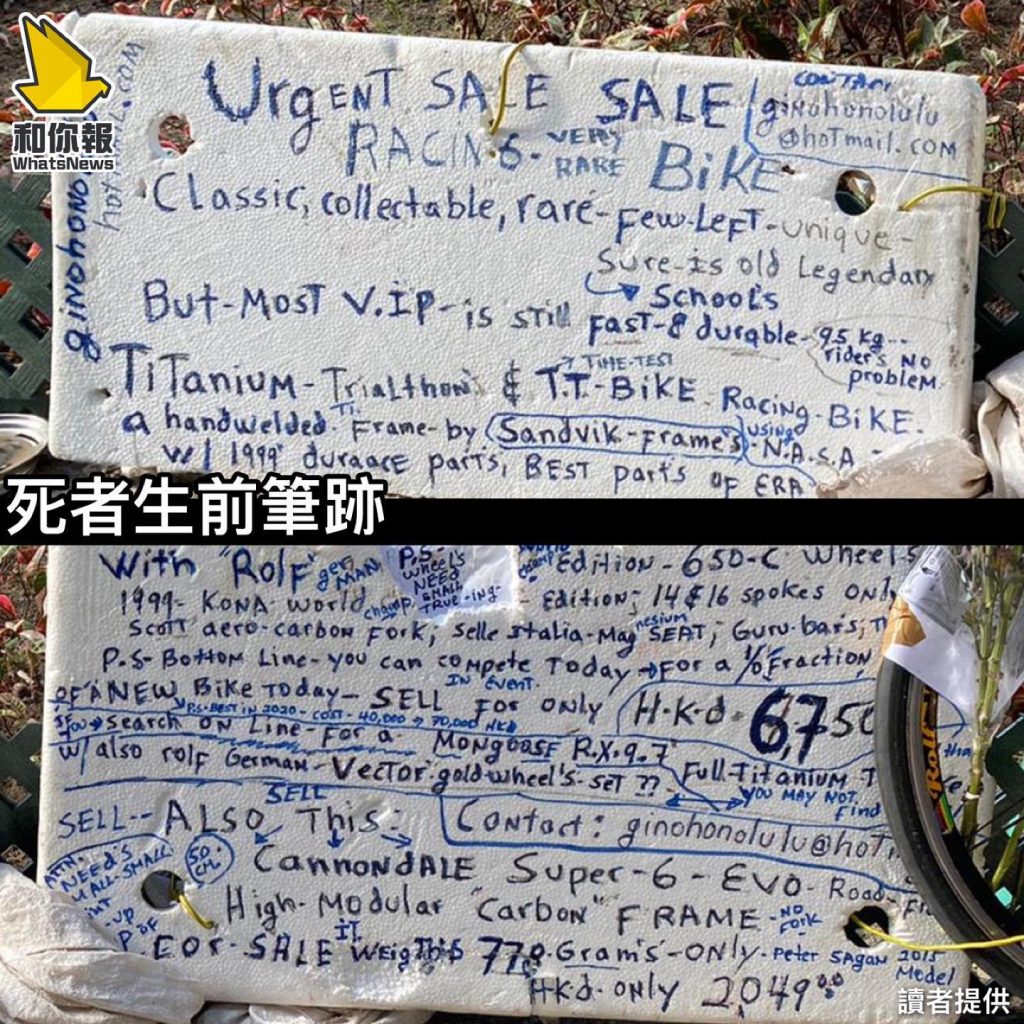 和你報
WhatsNews
UrgENT SALE SALE
CONTACT
ginohonolulu
@hotmail.com
RACING - VERY RARE BiKE
Classic, collectable, rare - Few-Left - unique -
Sure - is old Legendary
School's
But - Most V.I.P - is still Fast - & durable - 95 kg --
rider's NO
problem.
TITANIUM - Trialthon & T.T. - BiKE - Racing - BiKE.
TIME-TEST
a handwelded Ti. Frame - by Sandvik - Frame's using - N.A.S.A -
w/ 1999 duraace parts, BEST parts OF ERA
死者生前筆跡
With "Rolf" german
P.S-
wheel's
NEED
SMALL
TRUE-ing-
Edition - 650-C Wheels
1999 - KONA - world champ. - Edition; 14 & 16 spokes ONL
Scott aero-carbon Fork; Selle Italia - Magnesium SEAT; Guru-bars;
P.S - Bottom Line - you can compete Today → For a % Fraction
IN EVENT.
OF A NEW Bike Today - SELL For only H.K.d 6,750
P.S. BEST IN 2020 - COST - 40,000 → 70,000 HKD
IF you → Search ON Line - For a - MONGOOSE R.X.9.7
w/ also rolf German - Vector gold wheel's - set ?? Full - Titanium
YOU MAY NOT
find
SELL -- ALSO This:
SELL
Contact: ginohonolulu@hot
50
CM.
NEED'S
CannondALE Super-6-EVO - Road -
High - Modular "Carbon" FRAME - NO
Fork -
FOR - SALE IT WeigThs 770 - Gram's - ONLY - Peter SAgan 2015
Model
HKd - only 2049.00
Rolf
讀者提供